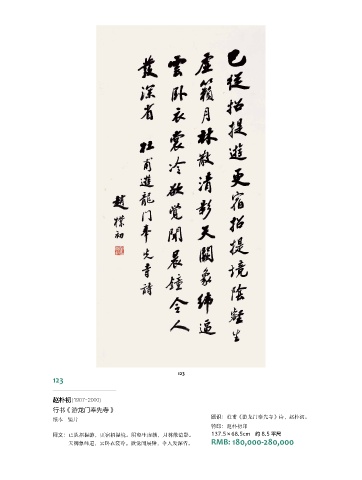 已從招提遊更宿招提境陰壑生
虛籟月林散清影天闕象緯逼
雲卧衣裳冷欲覺聞晨鐘令人
發深省 杜甫遊龍门奉先寺詩
趙樸初
123
123
赵朴初(1907-2000)
行书《游龙门奉先寺》
镜心
释文：已从招提游，更宿招提境。阴壑生虚籁，月林散清影。
天阙象纬逼，云卧衣裳冷。欲觉闻晨钟，令人发深省。
款识：杜甫《游龙门奉先寺》诗，赵朴初。
钤印：赵朴初印
137.5×68.5cm 约 8.5 平尺
RMB: 180,000-280,000